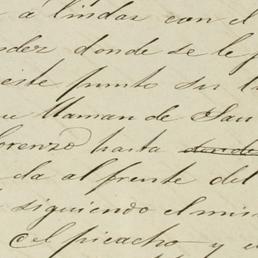 a lindar con el
donde se le
este punto su
llaman de San
Lorenzo hasta donde
da al frente del
siguiendo el mis
el picacho y